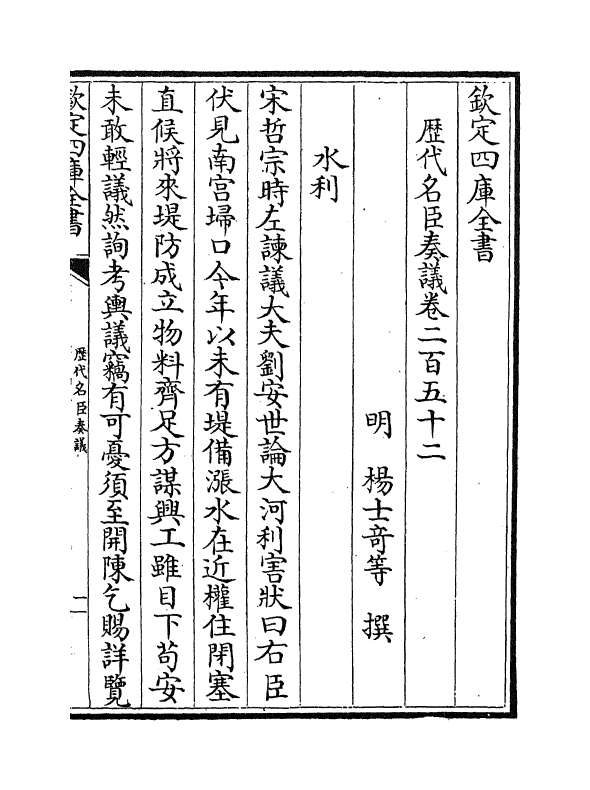 欽定四庫全書
歴代名臣奏議卷二百五十二
明　楊士竒等　撰
水利
宋哲宗時左諫議大夫劉安世論大河利害狀曰右臣
伏見南宫埽口今年以未有堤備漲水在近權住閉塞
直候將來堤防成立物料齊足方謀興工雖目下茍安
未敢輕議然詢考輿議竊有可憂須至開陳乞賜詳覽
欽定四庫全書
歴代名臣奏議
二